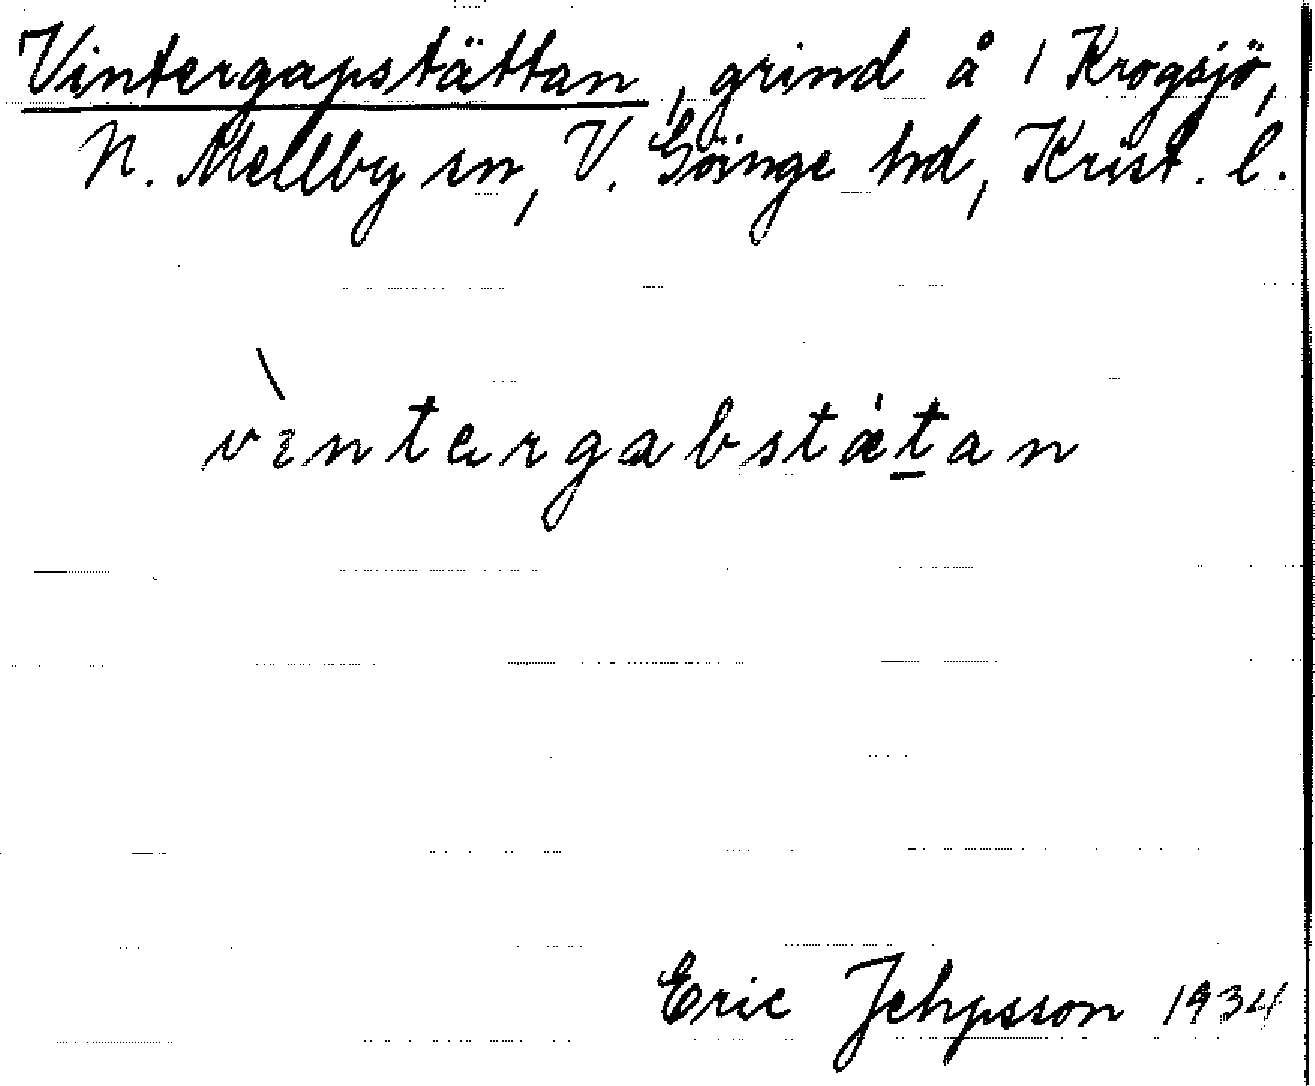 Vintergapstättan, grind å 1 Krogsjö,
N. Mellby sn, V. Göinge hd, Krist. l.
vìntərgabstǽt̲an
Eric Jehpsson 1934